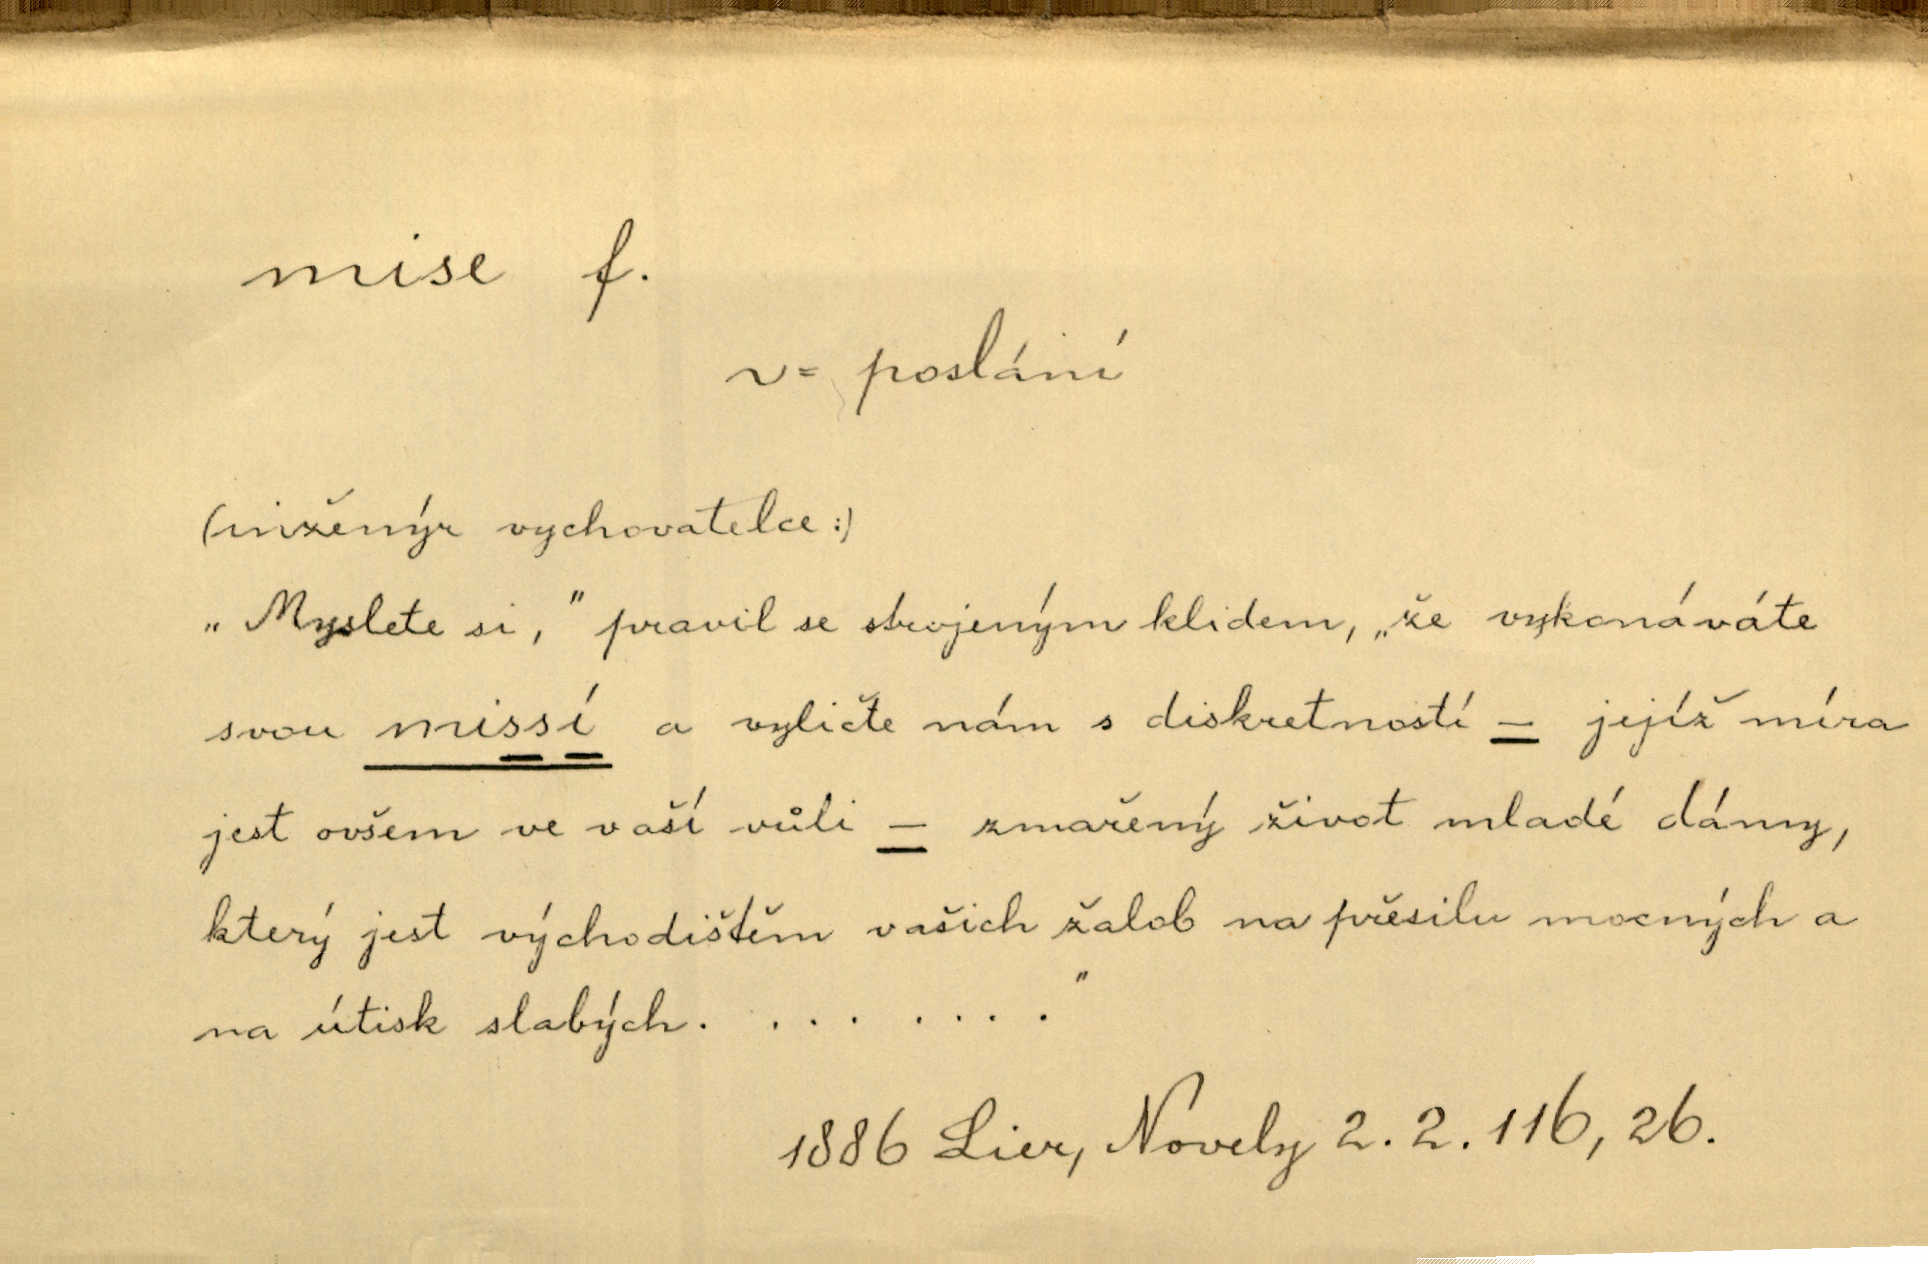 mise f.
v= poslání
(inženýr vychovatelce:)
„Myslete si,” pravil se strojeným klidem, „že vykonáváte
svou missí a vyličte nám s diskretností — jejíž míra
jest ovšem ve vaší vůli — zmařený život mladé dámy,
který jest východištěm vašich žalob na přesilu mocných a
na útisk slabých. . . . . . . . ”
1886 Lier, Novely 2. 2. 116, 26.